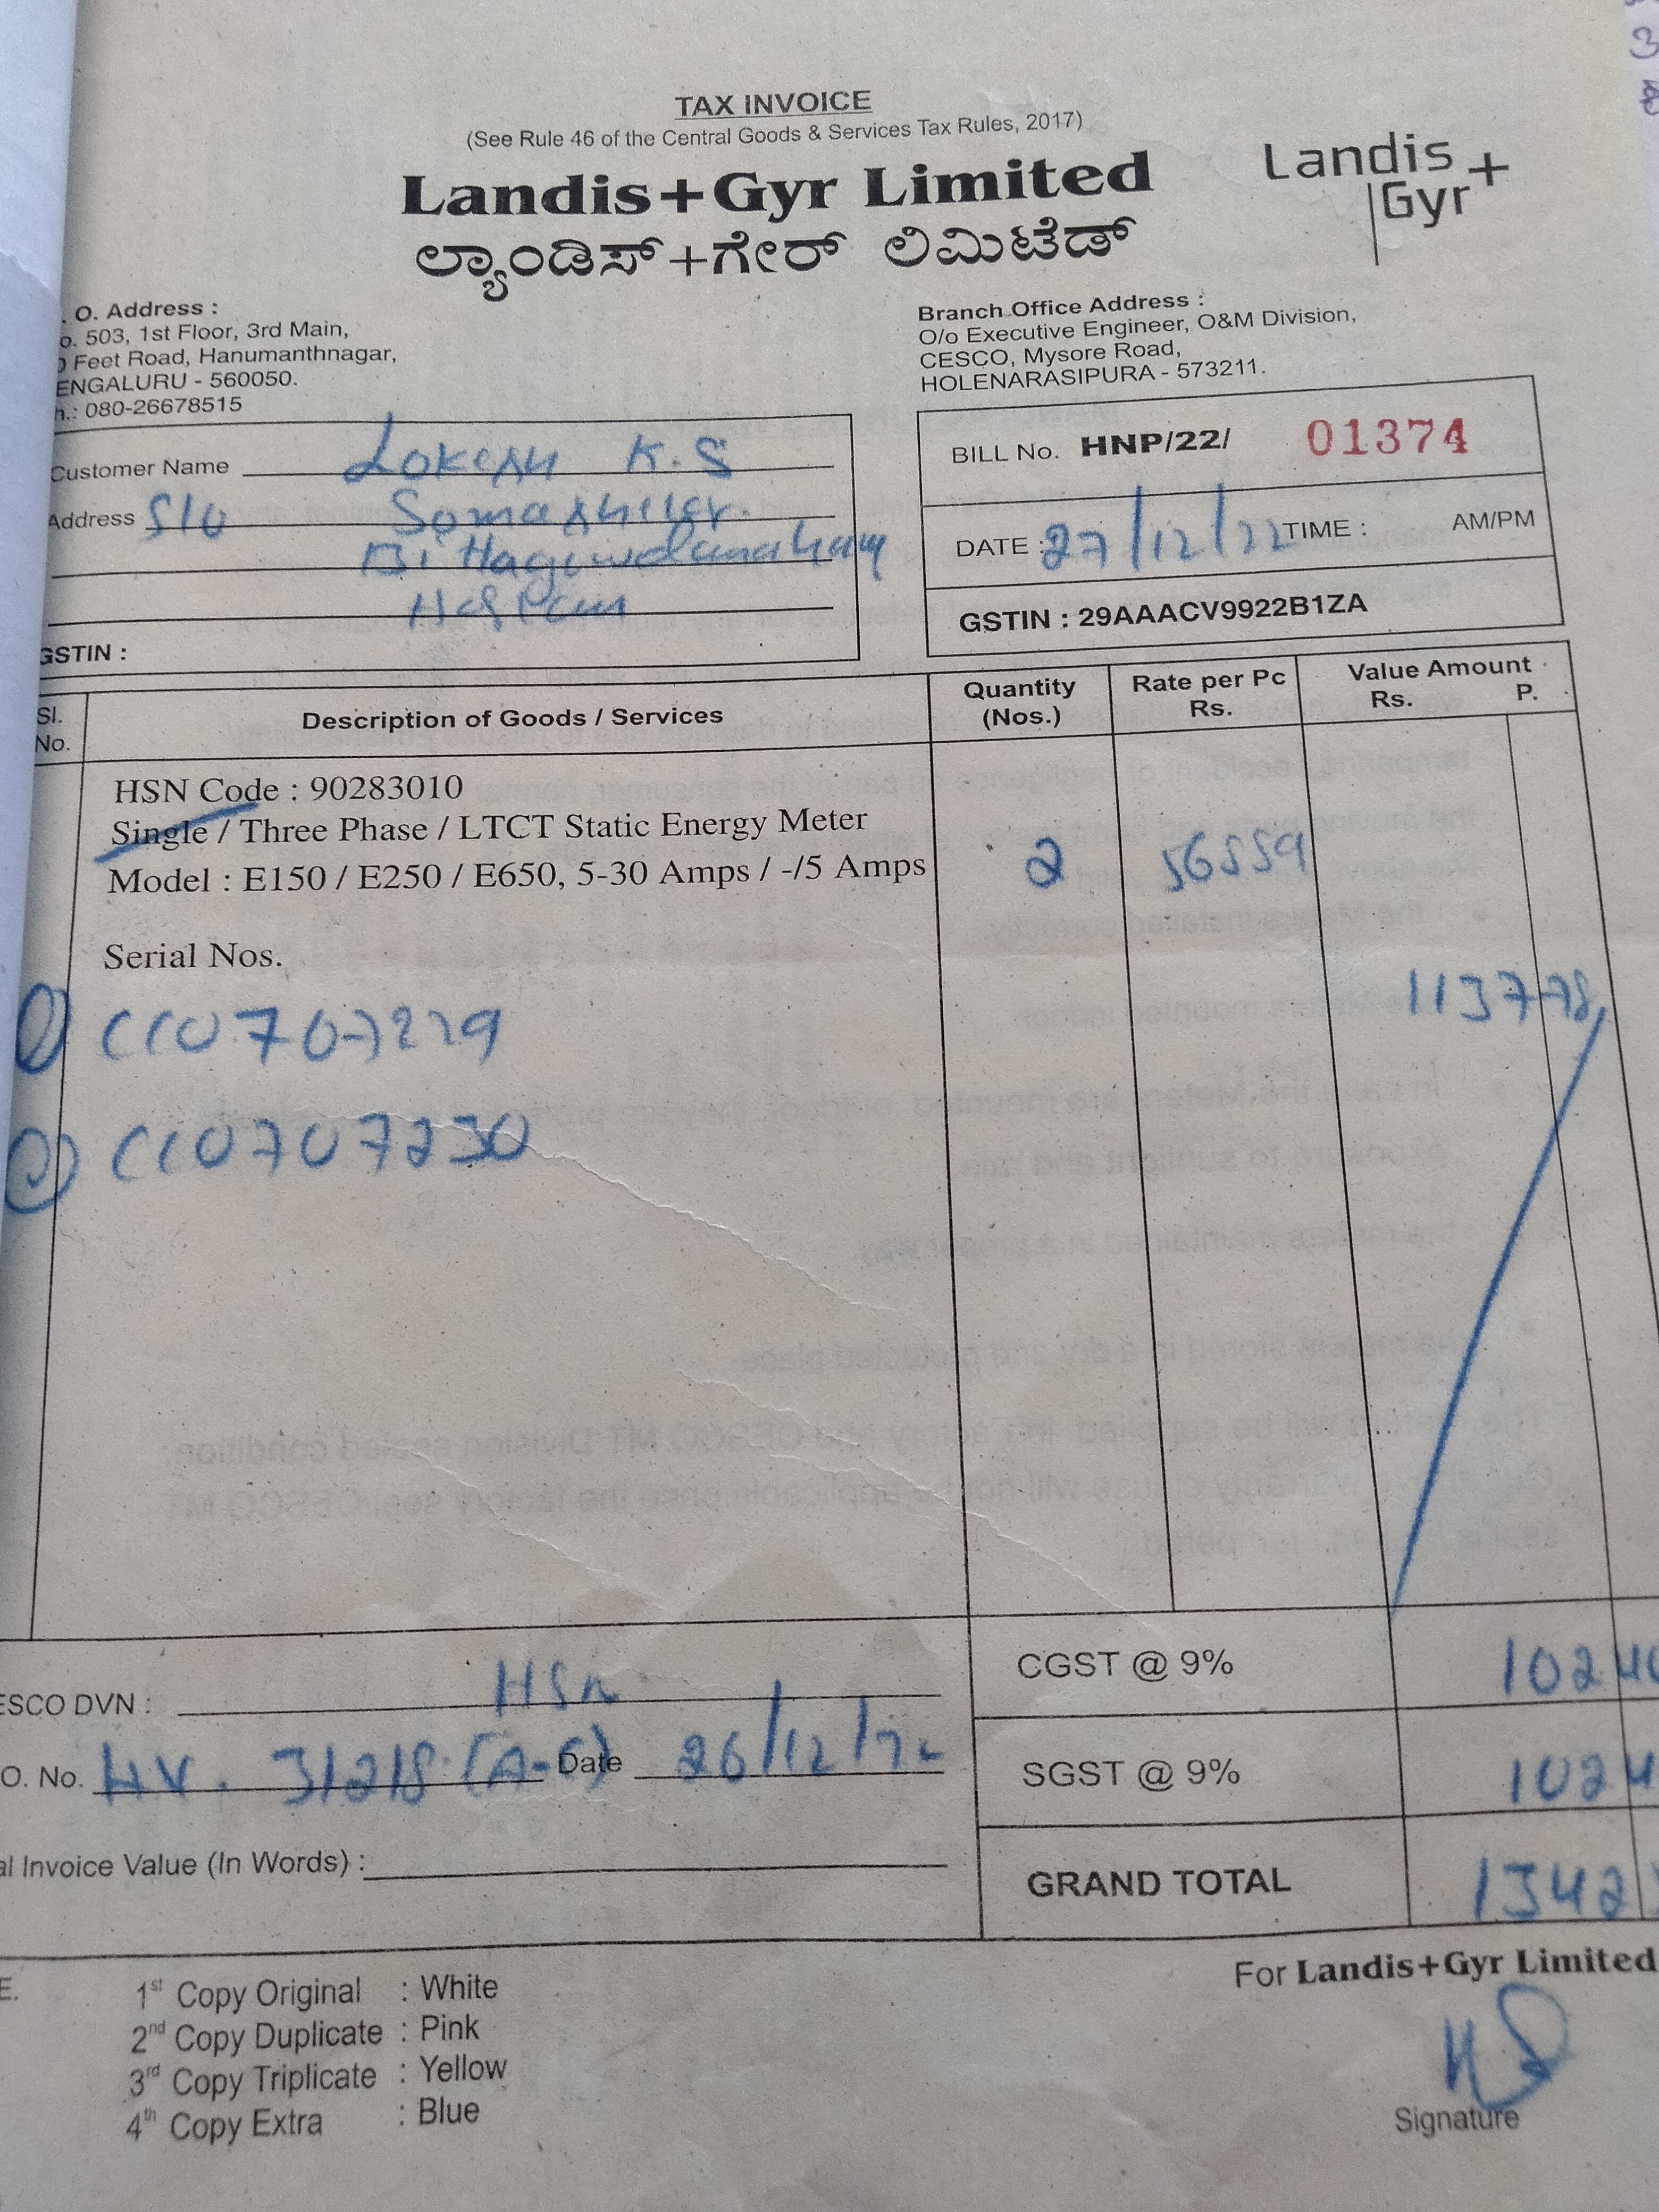 TAX INVOICE
(See Rule 46 of the Central Goods & Services Tax Rules, 2017)
Landis+Gyr Limited
ಲ್ಯಾಂಡಿಸ್+ಗೇರ್ ಲಿಮಿಟೆಡ್
Landis+
Gyr
. O. Address :
o. 503, 1st Floor, 3rd Main,
Feet Road, Hanumanthnagar,
ENGALURU - 560050.
h.: 080-26678515
Branch Office Address :
O/o Executive Engineer, O&M Division,
CESCO, Mysore Road,
HOLENARASIPURA - 573211.
Customer Name Lokesh K.S
Address S/o
GSTIN :
BILL No. HNP/22/ 01374
DATE : 27/12/22 TIME : AM/PM
GSTIN : 29AAACV9922B1ZA
Sl. No. Description of Goods / Services Quantity (Nos.) Rate per Pc Rs. Value Amount Rs. P.
HSN Code : 90283010
Single / Three Phase / LTCT Static Energy Meter
Model : E150 / E250 / E650, 5-30 Amps / -/5 Amps 2
Serial Nos.
113778
1)
2) 707230
CGST @ 9% 1024
ESCO DVN : HSN
O. No. HV. 31218 Date 26/12/22
SGST @ 9% 1024
al Invoice Value (In Words) :
GRAND TOTAL 1342
For Landis+Gyr Limited
E.
1st Copy Original : White
2nd Copy Duplicate : Pink
3rd Copy Triplicate : Yellow
4th Copy Extra : Blue
Signature